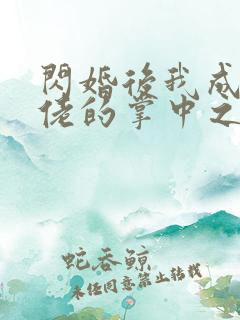 閃婚後我成
佬的掌中之
蛇吞鯨
未经同意禁止转载